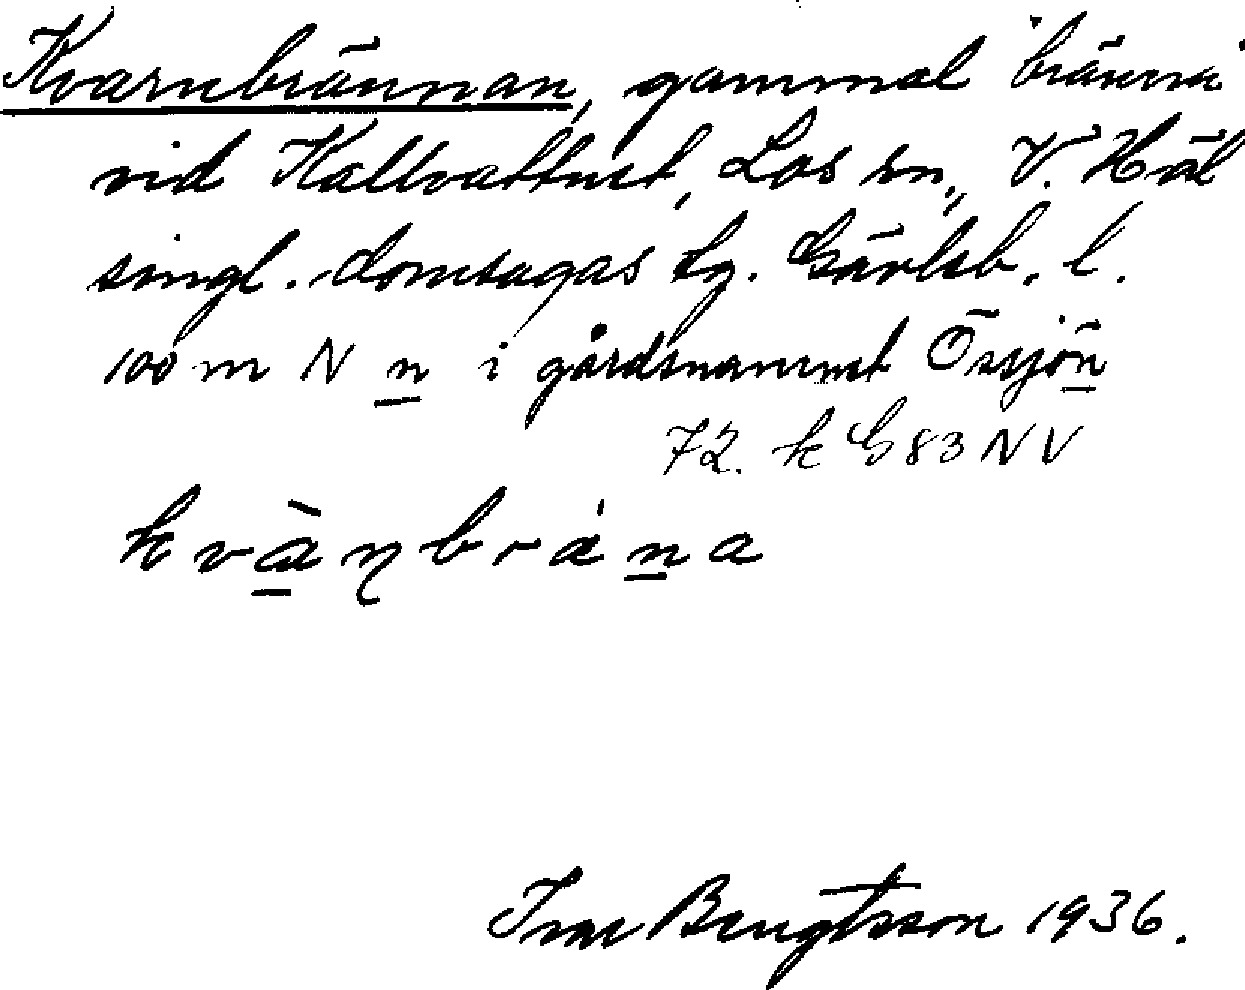 Kvarnbrännan, gammal "bränna"
vid Kallvattnet, Los sn., V. Häl
singl. domsagas tg. Gävleb. l.
100 m N n i gårdsnamnet Össjön
72. k G 83 NV
kvàŋbrána
Ivar Bengtsson 1936.